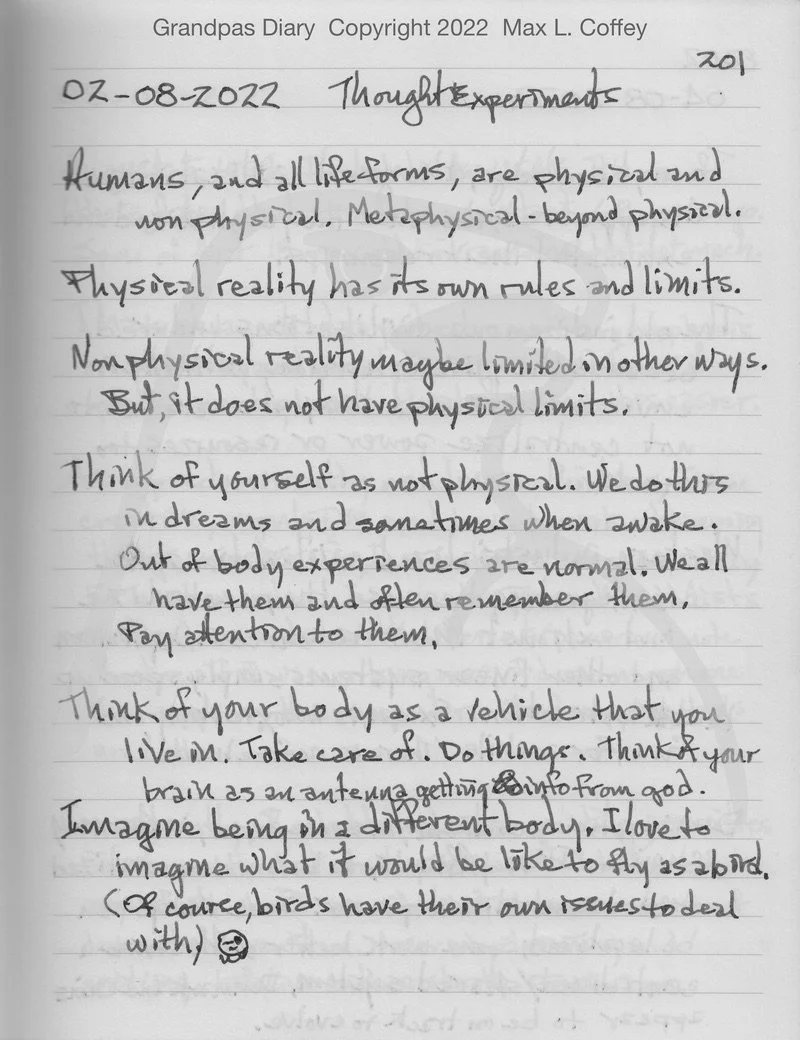 Grandpas Diary Copyright 2022 Max L. Coffey
201
02-08-2022 Thought Experiments
Humans, and all life forms, are physical and
non physical. Metaphysical - beyond physical.
Physical reality has its own rules and limits.
Nonphysical reality maybe limited in other ways.
But, it does not have physical limits.
Think of yourself as not physical. We do this
in dreams and sometimes when awake.
Out of body experiences are normal. We all
have them and often remember them.
Pay attention to them.
Think of your body as a vehicle that you
live in. Take care of. Do things. Think of your
brain as an antenna getting info from god.
Imagine being in a different body. I love to
imagine what it would be like to fly as a bird.
(Of course, birds have their own issues to deal
with)